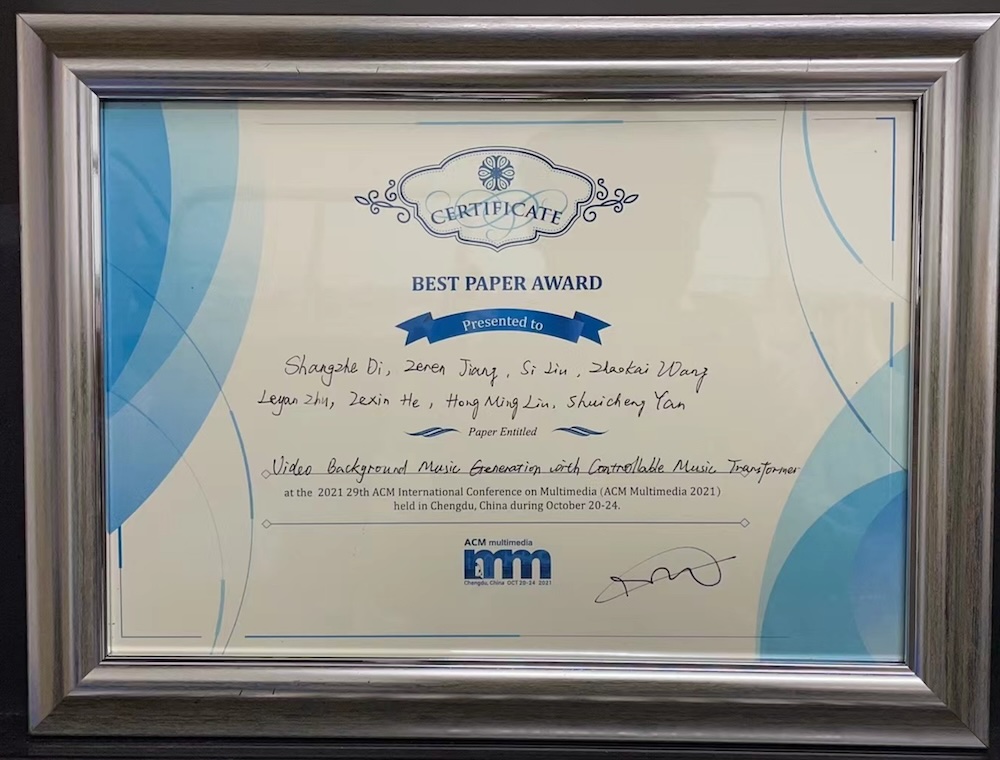 CERTIFICATE
BEST PAPER AWARD
Presented to
Shangzhe Di, Zeren Jiang, Si Liu, Zhaokai Wang
Leyan Zhu, Zexin He, Hongming Liu, Shuicheng Yan
Paper Entitled
Video Background Music Generation with Controllable Music Transformer
at the 2021 29th ACM International Conference on Multimedia (ACM Multimedia 2021)
held in Chengdu, China during October 20-24.
ACM multimedia
mm
Chengdu, China OCT 20-24 2021